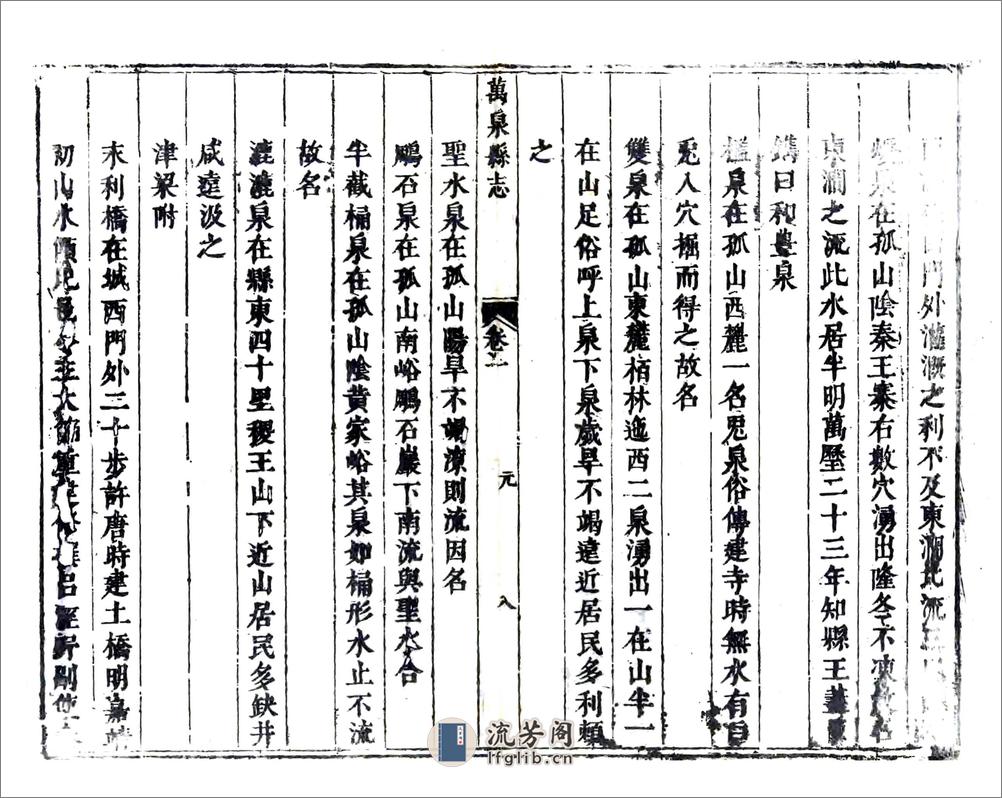 門外灌溉之利不及東澗
泉在孤山陰秦王寨右數穴湧出隆冬不凍
東澗之流此水居半明萬曆二十三年知縣王
鐫曰和豊泉
泉在孤山西麓一名兕泉俗傳建寺時無水有白
兎入穴掘而得之故名
雙泉在孤山東麓栢林迤西二泉湧出一在山半一
在山足俗呼上泉下泉歲旱不竭遠近居民多利頼
之
萬泉縣志
卷二
元
八
聖水泉在孤山陽旱不竭潦則流因名
鵰石泉在孤山南峪鵰石巖下南流與聖水合
半截桶泉在孤山陰黄家峪其泉如桶形水止不流
故名
漉漉泉在縣東四十里稷王山下近山居民多缺井
咸遠汲之
津梁附
末利橋在城西門外三十步許唐時建土橋明嘉靖
初山水
流芳阁
lfglib.cn